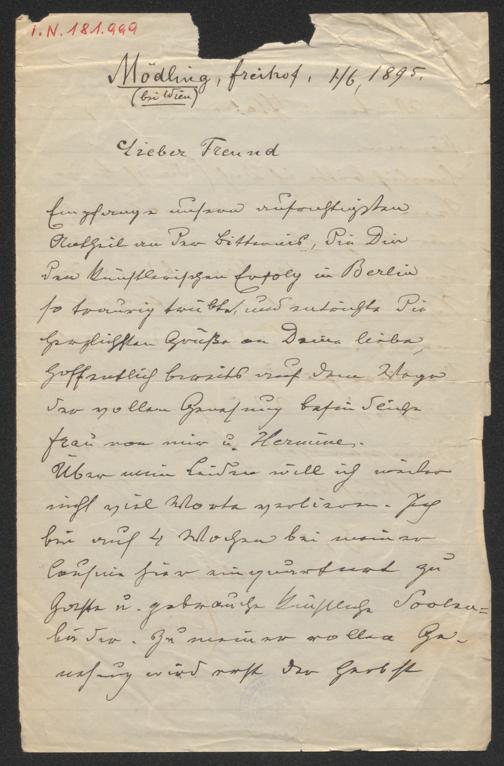 I.N. 181.999
Mödling, Freihof, 1/6, 1895.
(bei Wien)
Lieber Freund
Empfange unsern aufrichtigsten
Antheil an der Bitterniß, die Dir
den künstlerischen Erfolg in Berlin
so traurig trübte, und entrichte die
herzlichsten Grüße an Deine liebe,
hoffentlich bereits auf dem Wege
der vollen Genesung befindliche
Frau von mir u. Hermine.
Über mein Leiden will ich weiter
nicht viel Worte verlieren. Ich
bin auf 4 Wochen bei meiner
Cousine hier einquartirt zu
Gaste u. gebrauche künstliche Soolen=
bäder. Zu meiner vollen Ge-
nesung wird erst der Herbst